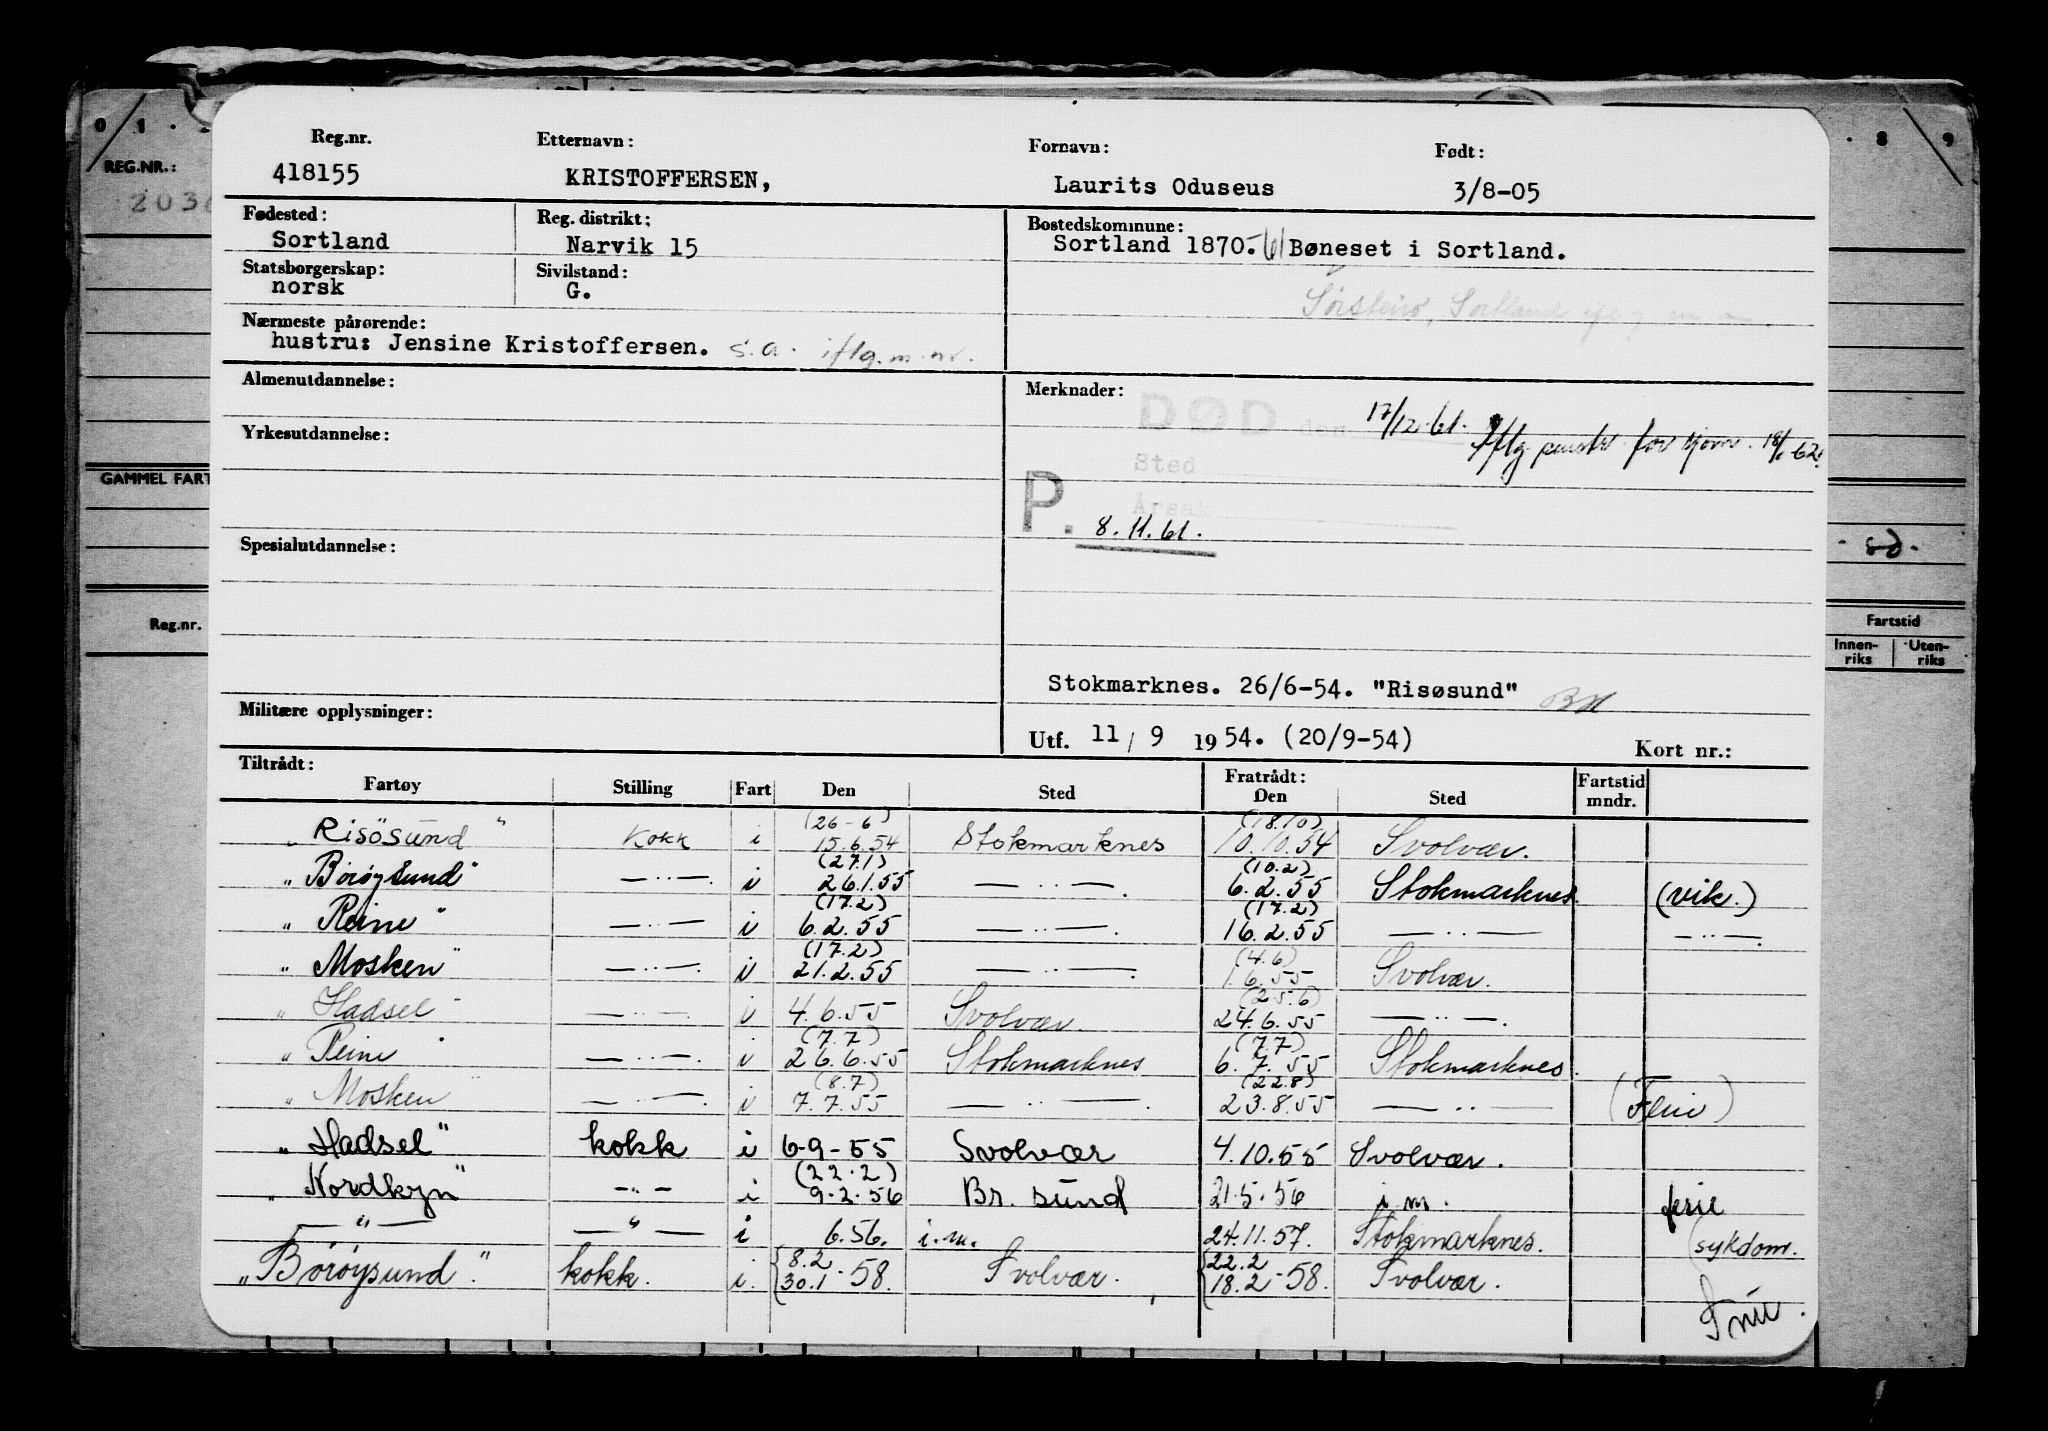 0 1 . 8 9
REG.NR.:
203
GAMMEL FART
Reg.nr.
- sd -
Fartstid
Innen-riks Uten-riks
Reg.nr. Etternavn: Fornavn: Født:
418155 KRISTOFFERSEN, Laurits Oduseus 3/8-05
Fødested: Reg. distrikt: Bostedskommune:
Sortland Narvik 15 Sortland 1870.-61 Bøneset i Sortland.
Statsborgerskap: Sivilstand:
norsk G.
Sortland
Nærmeste pårørende:
hustru: Jensine Kristoffersen. s.a. iflg.m.nr.
Almenutdannelse: Merknader:
DØD den 17/12.61. iflg for 62.
Yrkesutdannelse:
Sted
Årsak
P. 8.11.61.
Spesialutdannelse:
Stokmarknes. 26/6-54. "Risøsund"
Militære opplysninger:
Utf. 11/9 1954. (20/9-54) Kort nr.:
Tiltrådt: Fratrådt:
Fartøy Stilling Fart Den Sted Den Sted Fartstid mndr.
(26-6) (18.10)
"Risösund" Kokk i 15.6.54 Stokmarknes 10.10.54 Svolvær.
(27.1) (10.2)
"Börøysund" —"—. i 26.1.55 —"—. 6.2.55 Stokmarknes. (vik.)
(17.2) (17.2)
"Reine" —"— i 6.2.55 —"—. 16.2.55 —"— —"—.
(17.2) (4.6)
"Mosken" —"—. i 21.2.55 —"—. 1.6.55 Svolvær.
(25.6)
"Hadsel" —"—. i 4.6.55 Svolvær. 24.6.55 —"—.
(7.7) (7.7)
"Reine" —"—. i 26.6.55 Stokmarknes 6.7.55 Stokmarknes.
(8.7) (22.8)
"Mosken" —"—. i 7.7.55 —"—. 23.8.55 —"— (Ferie)
"Hadsel" kokk i 6-9-55 Svolvær 4.10.55 Svolvær.
(22.2)
"Nordkyn" -"- i 9.2.56 Br. sund 21.5.56 i m. ferie
—"— —"— i 6.56. i.m. 24.11.57. Stokmarknes. (sykdom.
8.2 22.2
"Börøysund." kokk. i. 30.1-58. Svolvær. 18.2-58. Svolvær.